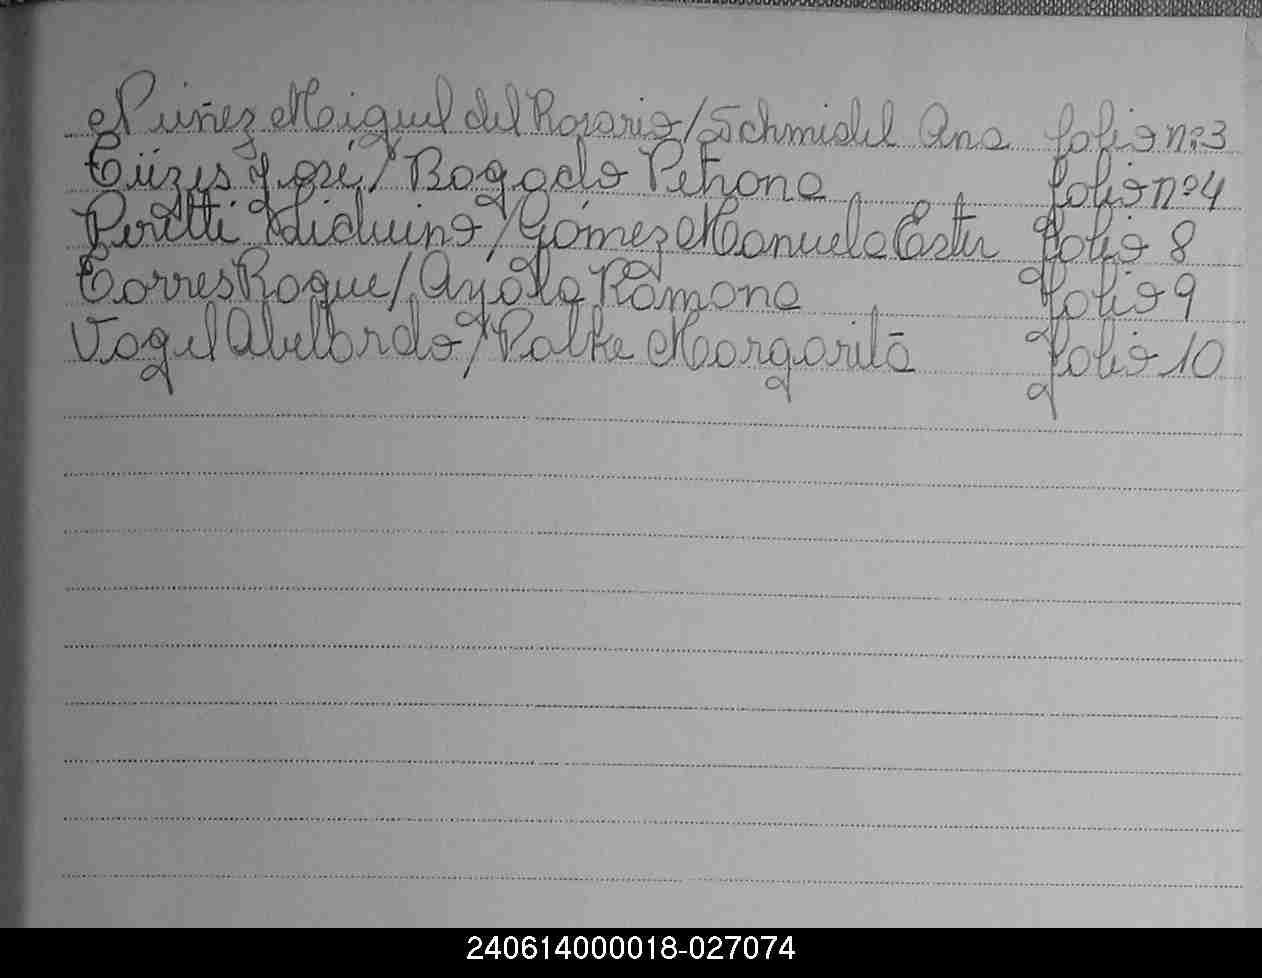 Núñez Miguel del Rosario/Schmidel Ana folio nº3
José/Bogado Petrona folio nº4
Peretti Liduino/Gómez Manuela Ester folio 8
Torres Roque/Ayala Ramona folio 9
Vogel Abelardo/Palke Margarita folio 10
240614000018-027074